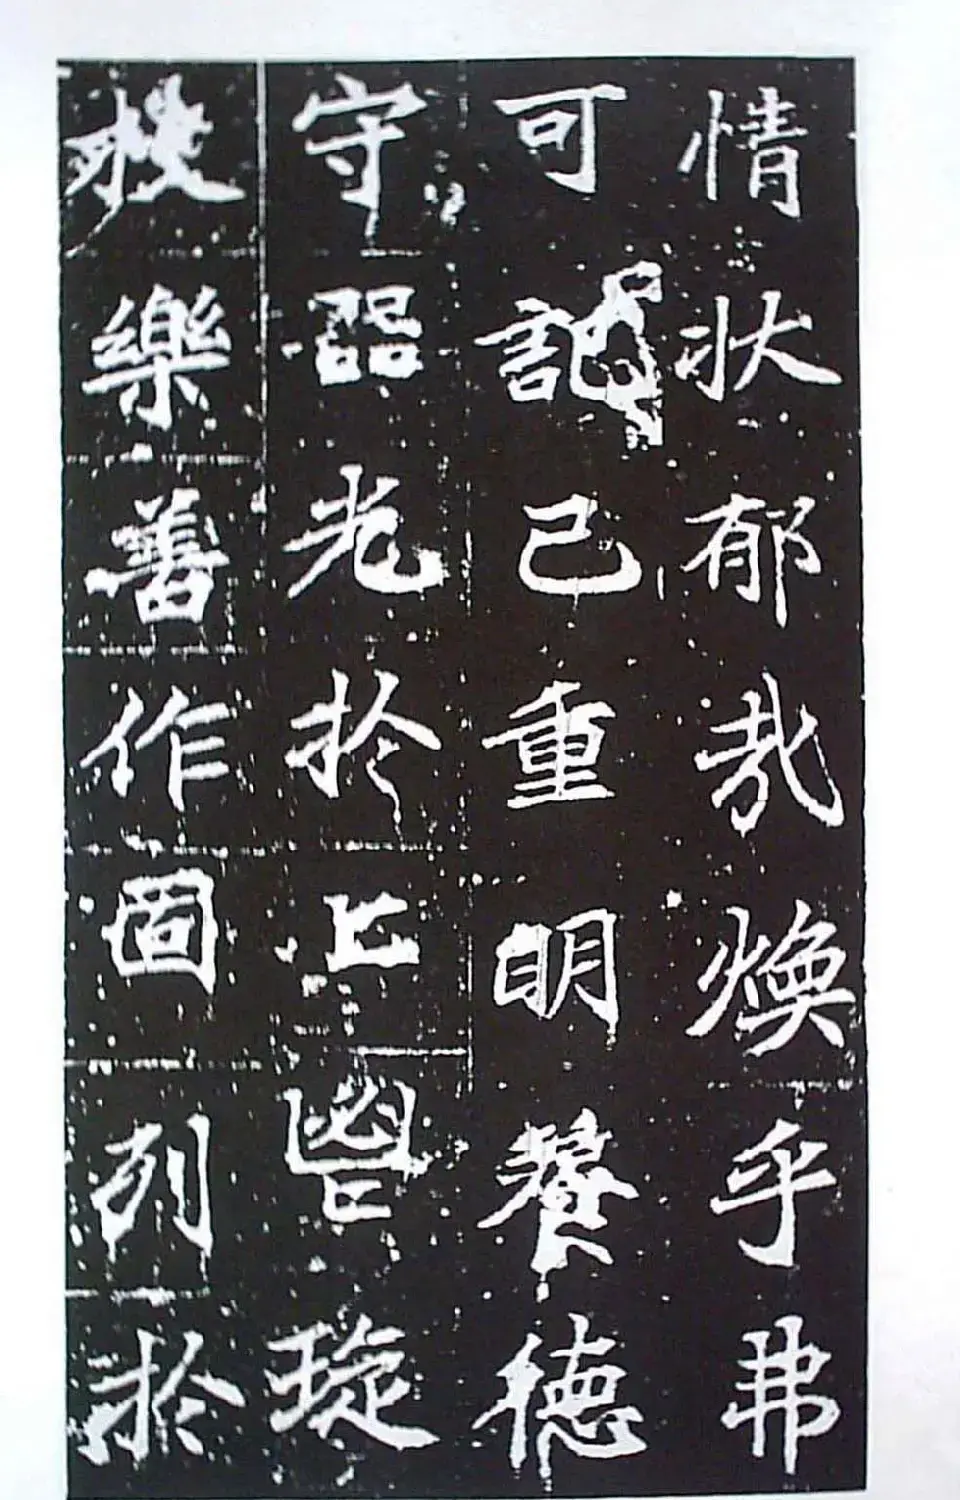 情狀郁哉煥乎弗
可記已重明養德
守器光於上嗣璇
枝樂善作固列於